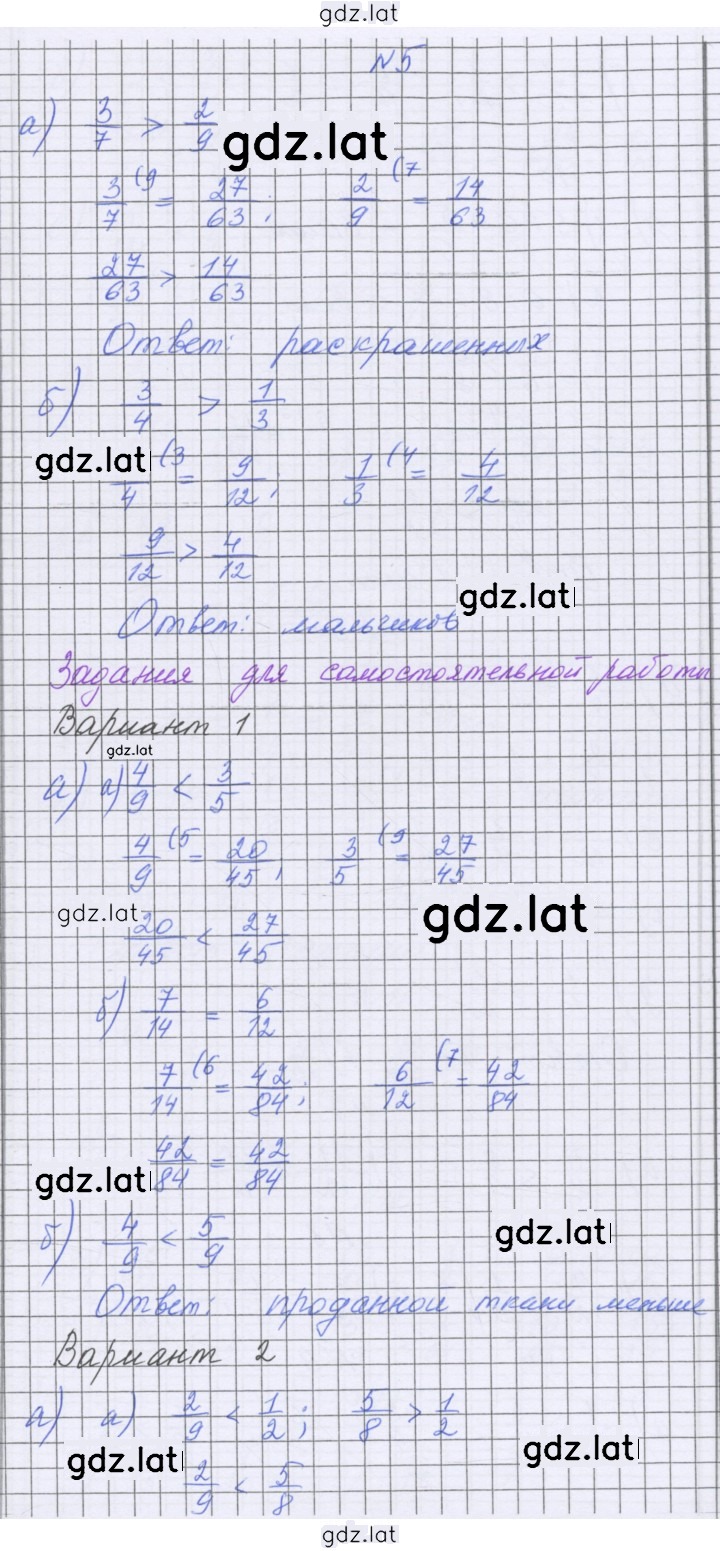 gdz.lat
№5
а) 3/7 > 2/9
gdz.lat
3/7 (9 = 27/63; 2/9 (7 = 14/63
27/63 > 14/63
Ответ: раскрашенных
б) 3/4 > 1/3
gdz.lat
/4 (3 = 9/12; 1/3 (4 = 4/12
9/12 > 4/12
gdz.lat
Ответ: мальчиков
Задания для самостоятельной работы
Вариант 1
gdz.lat
а) а) 4/9 < 3/5
4/9 (5 = 20/45; 3/5 (9 = 27/45
gdz.lat
gdz.lat
20/45 < 27/45
б) 7/14 = 6/12
7/14 (6 = 42/84; 6/12 (7 = 42/84
42/84 = 42/84
gdz.lat
б) 4/9 < 5/9
gdz.lat
Ответ: проданной ткани меньше
Вариант 2
а) а) 2/9 < 1/2; 5/8 > 1/2
gdz.lat
gdz.lat
2/9 < 5/8
gdz.lat